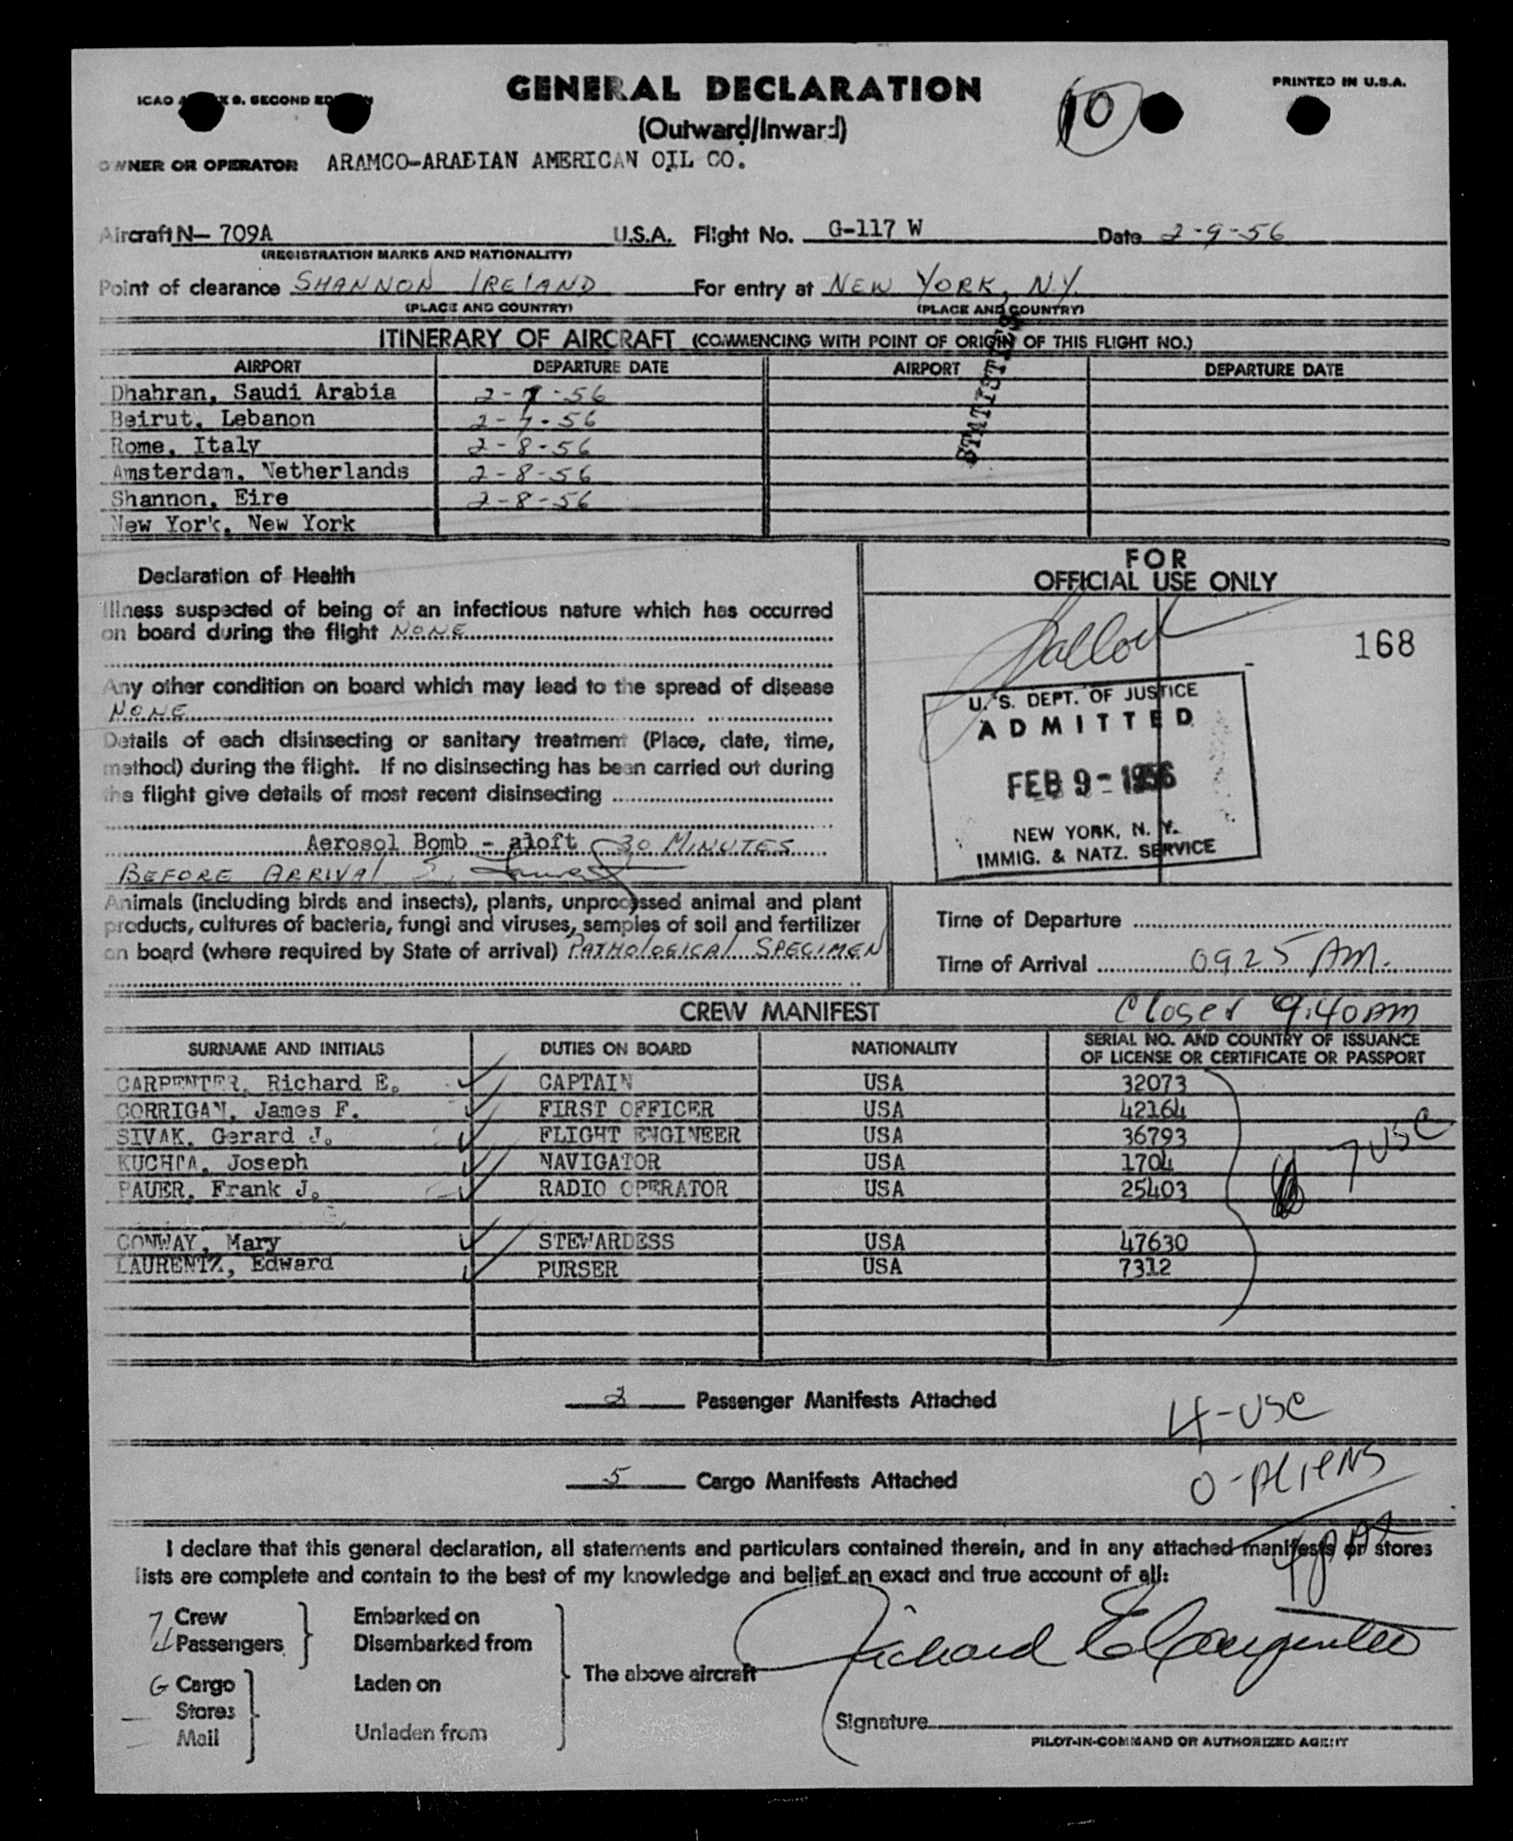 ICAO ANNEX 9. SECOND EDITION
GENERAL DECLARATION
PRINTED IN U.S.A.
(Outward/Inward)
10
OWNER OR OPERATOR ARAMCO-ARABIAN AMERICAN OIL CO.
Aircraft N- 709A U.S.A. Flight No. G-117 W Date 2-9-56
(REGISTRATION MARKS AND NATIONALITY)
Point of clearance SHANNON IRELAND For entry at NEW YORK, N.Y.
(PLACE AND COUNTRY) (PLACE AND COUNTRY)
STATISTICS
ITINERARY OF AIRCRAFT (COMMENCING WITH POINT OF ORIGIN OF THIS FLIGHT NO.)
AIRPORT DEPARTURE DATE AIRPORT DEPARTURE DATE
Dhahran, Saudi Arabia 2-7-56
Beirut, Lebanon 2-7-56
Rome, Italy 2-8-56
Amsterdam, Netherlands 2-8-56
Shannon, Eire 2-8-56
New York, New York
Declaration of Health
Illness suspected of being of an infectious nature which has occurred
on board during the flight NONE
Any other condition on board which may lead to the spread of disease
NONE
Details of each disinsecting or sanitary treatment (Place, date, time,
method) during the flight. If no disinsecting has been carried out during
the flight give details of most recent disinsecting
Aerosol Bomb - aloft 30 MINUTES
BEFORE ARRIVAL
Animals (including birds and insects), plants, unprocessed animal and plant
products, cultures of bacteria, fungi and viruses, samples of soil and fertilizer
on board (where required by State of arrival) PATHOLOGICAL SPECIMEN
FOR
OFFICIAL USE ONLY
168
U. S. DEPT. OF JUSTICE
ADMITTED
FEB 9 - 1956
NEW YORK, N. Y.
IMMIG. & NATZ. SERVICE
Time of Departure
Time of Arrival 0925 AM.
CREW MANIFEST
Closer 9:40 AM
SURNAME AND INITIALS DUTIES ON BOARD NATIONALITY SERIAL NO. AND COUNTRY OF ISSUANCE
OF LICENSE OR CERTIFICATE OR PASSPORT
CARPENTER, Richard E. CAPTAIN USA 32073
CORRIGAN, James F. FIRST OFFICER USA 42164
SIVAK, Gerard J. FLIGHT ENGINEER USA 36793
KUCHTA, Joseph NAVIGATOR USA 1704
PAUER, Frank J. RADIO OPERATOR USA 25403
CONWAY, Mary STEWARDESS USA 47630
LAURENTZ, Edward PURSER USA 7312
7 USC
2 Passenger Manifests Attached
4-USC
5 Cargo Manifests Attached
0-ALIENS
I declare that this general declaration, all statements and particulars contained therein, and in any attached manifests or stores
lists are complete and contain to the best of my knowledge and belief an exact and true account of all:
7 Crew
4 Passengers
Embarked on
Disembarked from
G Cargo
Stores
Mail
Laden on
Unladen from
The above aircraft
Richard E Carpenter
Signature
PILOT-IN-COMMAND OR AUTHORIZED AGENT